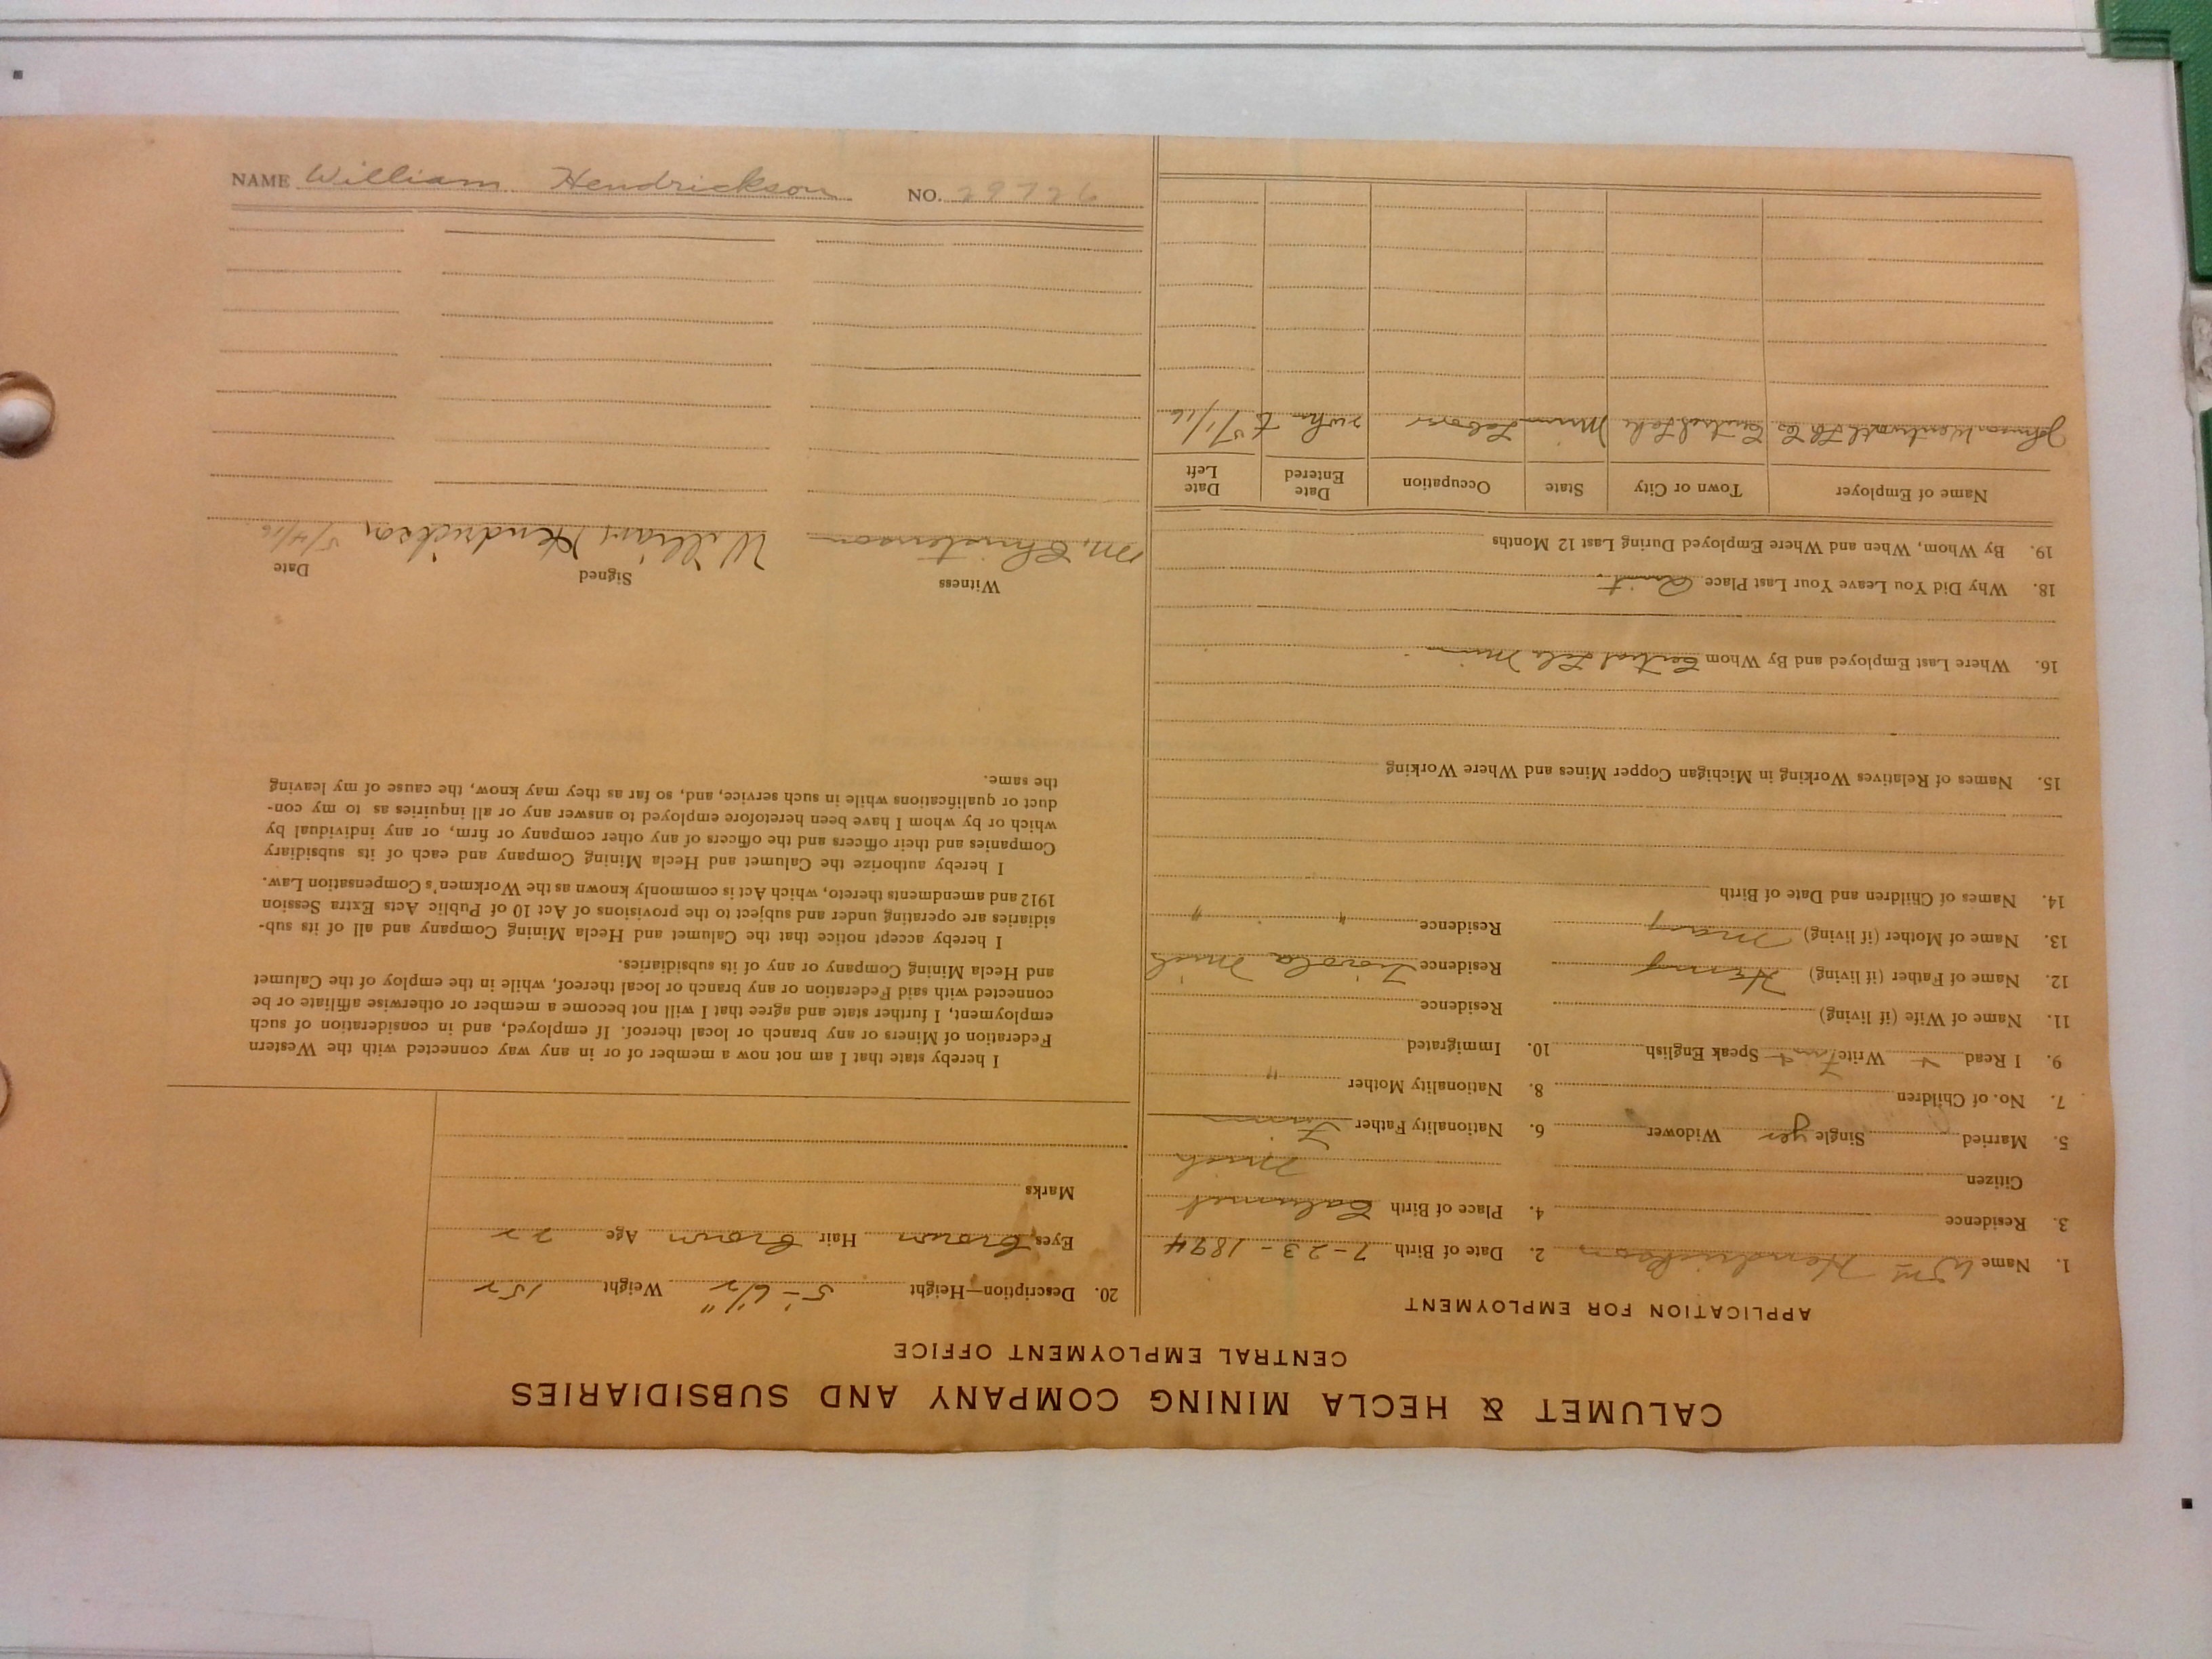 CALUMET & HECLA MINING COMPANY AND SUBSIDIARIES
CENTRAL EMPLOYMENT OFFICE
APPLICATION FOR EMPLOYMENT
1. Name Wm Hendrickson 2. Date of Birth 7-23-1894
3. Residence 4. Place of Birth Calumet
Citizen Mich
5. Married Single yes Widower 6. Nationality Father Finn
7. No. of Children 8. Nationality Mother "
9. I Read Write Speak English 10. Immigrated
11. Name of Wife (if living) Residence
12. Name of Father (if living) Henry Residence Liola Mich
13. Name of Mother (if living) Mary Residence " "
14. Names of Children and Date of Birth
15. Names of Relatives Working in Michigan Copper Mines and Where Working
16. Where Last Employed and By Whom Central Lake Minn
18. Why Did You Leave Your Last Place Quit
19. By Whom, When and Where Employed During Last 12 Months
Name of Employer Town or City State Occupation Date Entered Date Left
Johnson Wentworth Lb Co Central Lake Minn Laborer 5/1/16
20. Description—Height 5'-6 1/2" Weight 152
Eyes brown Hair brown Age 22
Marks
I hereby state that I am not now a member of or in any way connected with the Western
Federation of Miners or any branch or local thereof. If employed, and in consideration of such
employment, I further state and agree that I will not become a member or otherwise affiliate or be
connected with said Federation or any branch or local thereof, while in the employ of the Calumet
and Hecla Mining Company or any of its subsidiaries.
I hereby accept notice that the Calumet and Hecla Mining Company and all of its sub-
sidiaries are operating under and subject to the provisions of Act 10 of Public Acts Extra Session
1912 and amendments thereto, which Act is commonly known as the Workmen's Compensation Law.
I hereby authorize the Calumet and Hecla Mining Company and each of its subsidiary
Companies and their officers and the officers of any other company or firm, or any individual by
which or by whom I have been heretofore employed to answer any or all inquiries as to my con-
duct or qualifications while in such service, and, so far as they may know, the cause of my leaving
the same.
Witness Signed Date
M. Christenson William Hendrickson 5/4/16
NAME William Hendrickson NO. 29726